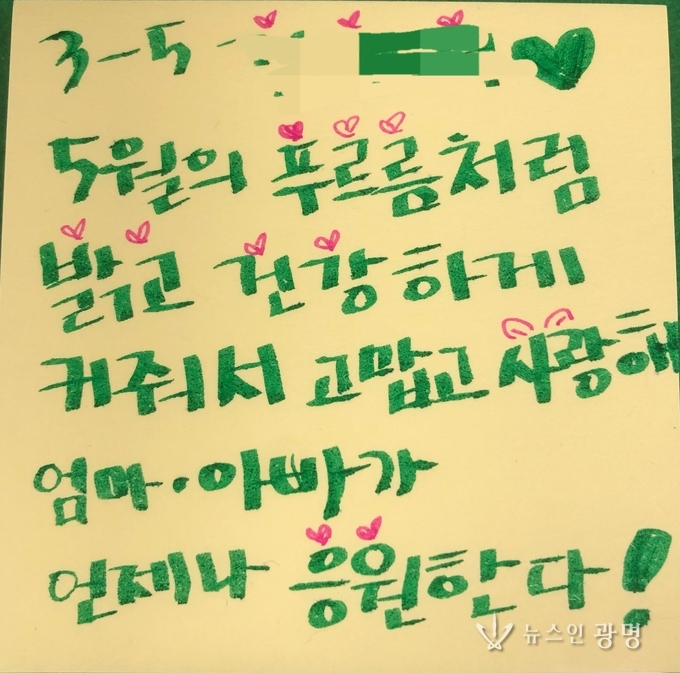 3-5
5월의 푸르름처럼
밝고 건강하게
커줘서 고맙고 사랑해
엄마·아빠가
언제나 응원한다!
뉴스인 광명